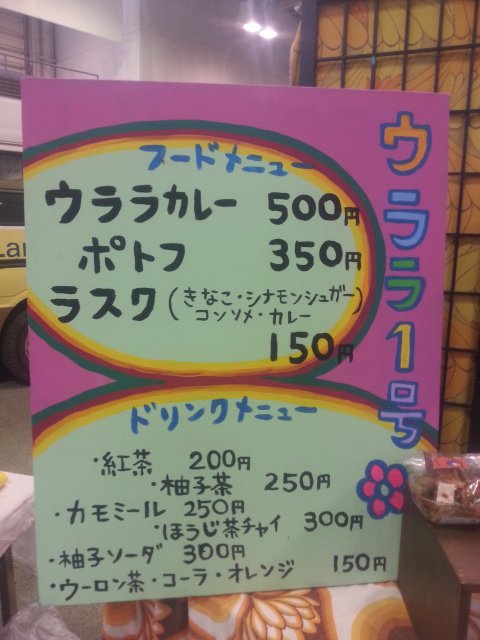 フードメニュー
ウララカレー 500円
ポトフ 350円
ラスク(きなこ・シナモンシュガー
コンソメ・カレー)
150円
ドリンクメニュー
・紅茶 200円
・柚子茶 250円
・カモミール 250円
・ほうじ茶チャイ 300円
・柚子ソーダ 300円
・ウーロン茶・コーラ・オレンジ 150円
ウララ1号